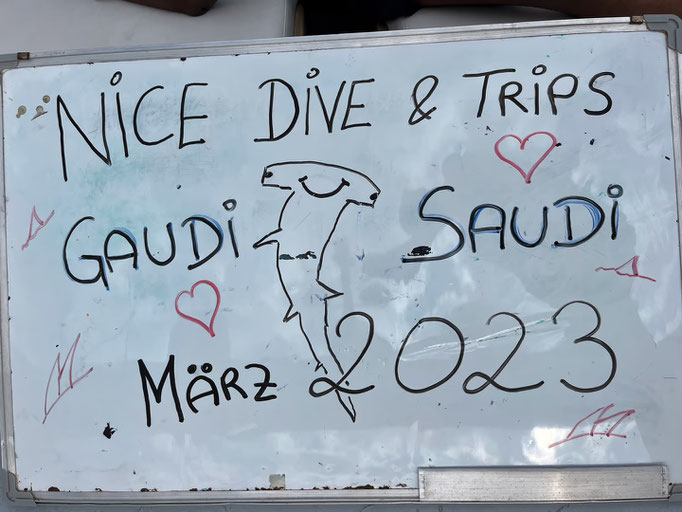 NiCE DiVE & TRiPS
GAUDi SAUDi
MÄRZ 2023